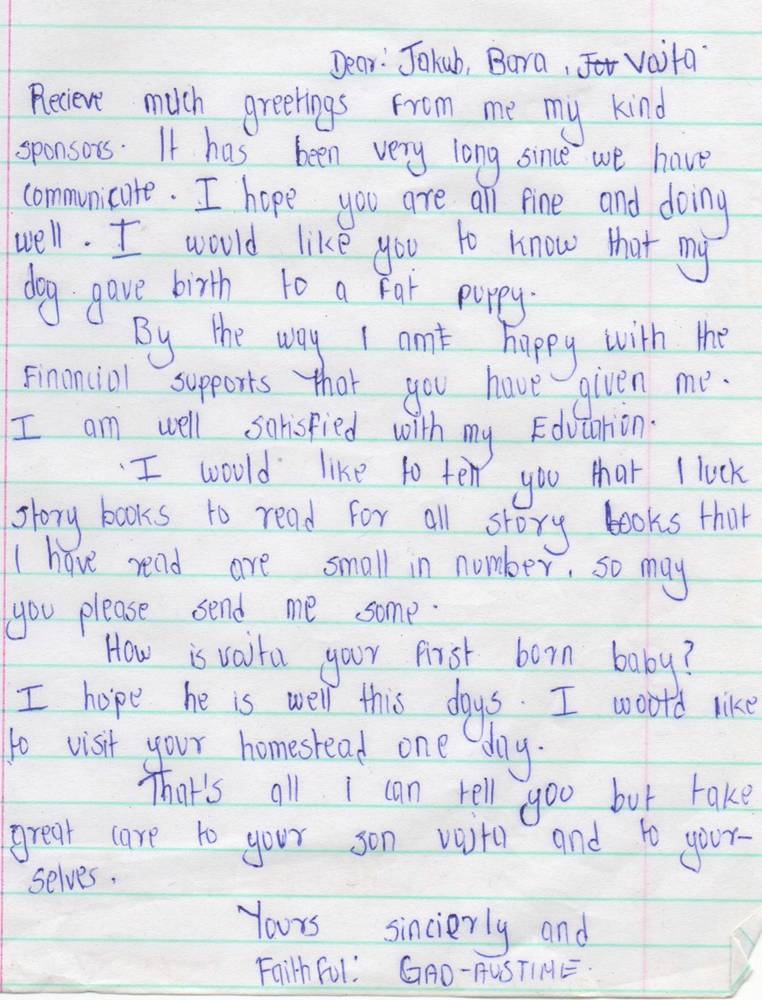 Dear: Jakub, Bara, Jot Vojta
Recieve much greetings from me my kind
sponsors. It has been very long since we have
communicate. I hope you are all fine and doing
well. I would like you to know that my
dog gave birth to a fat puppy.
By the way I am happy with the
Financial supports that you have given me.
I am well satisfied with my Education.
I would like to tell you that I luck
story books to read for all story books that
I have read are small in number, so may
you please send me some.
How is vojta your first born baby?
I hope he is well this days. I would like
to visit your homestead one day.
That's all i can tell you but take
great care to your son vojta and to your-
selves.
Yours sincierly and
Faithful: GAD-AUSTIME.